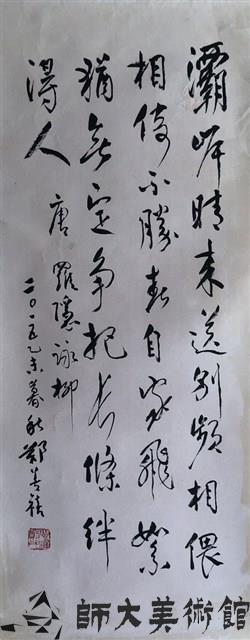 灞岸晴来送别頻相偎
相倚不勝春自家飛絮
猶無定争把长條绊
得人
唐 羅隱詠柳
二〇一五乙未暮秋鄭
師大美術館